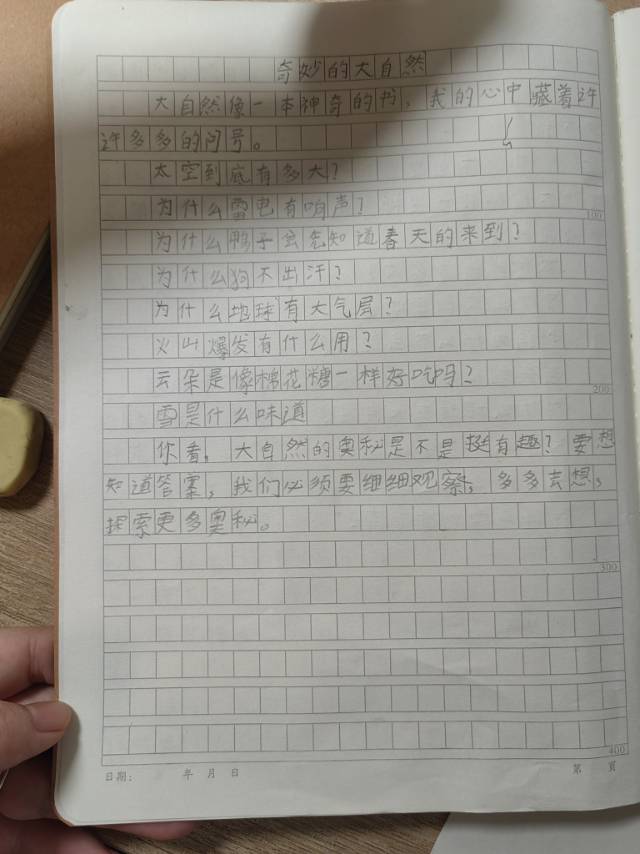 奇妙的大自然
大自然像一本神奇的书，我的心中藏着许
许多多的问号。
太空到底有多大？
为什么雷电有响声？
100
为什么鸭子会先知道春天的来到？
为什么狗不出汗？
为什么地球有大气层？
火山爆发有什么用？
云朵是像棉花糖一样好吃吗？
200
雪是什么味道
你看，大自然的奥秘是不是挺有趣？要想
知道答案，我们必须要细细观察，多多去想，
探索更多奥秘。
300
400
日期： 年 月 日 第 页